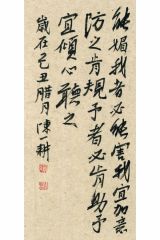 能媚我者必能害我宜加意
防之肯規予者必肯助予
宜傾心聽之
歲在己丑腊月陳一耕